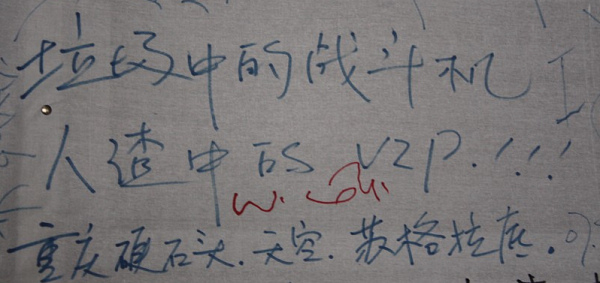 垃圾中的战斗机
人渣中的 VZP.!!!
重庆硬石头.天空.苏格拉底.